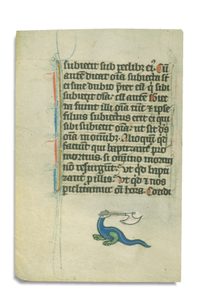 subiecit sub pedibꝫ ei⁹. Cū
autē dicat oīa subiecta sūt
ei sine dubio p̄ter eū q̄ sub
iecit oīa. cū autē subiec
ta fuerint illi oīa tūc et ipse
filius subiectus erit ei qui
sibi subiecit oīa ut sit dſ
oīa in omībꝫ. Alioquin qͥd
faciūt qui baptizant̄ pro
mortuis si omnino mortui
nō resurgūt. ut qͥd bapti
zant̄ pro illis. ut qͥd et nos
periclitamur om̄i hora. Cotidi